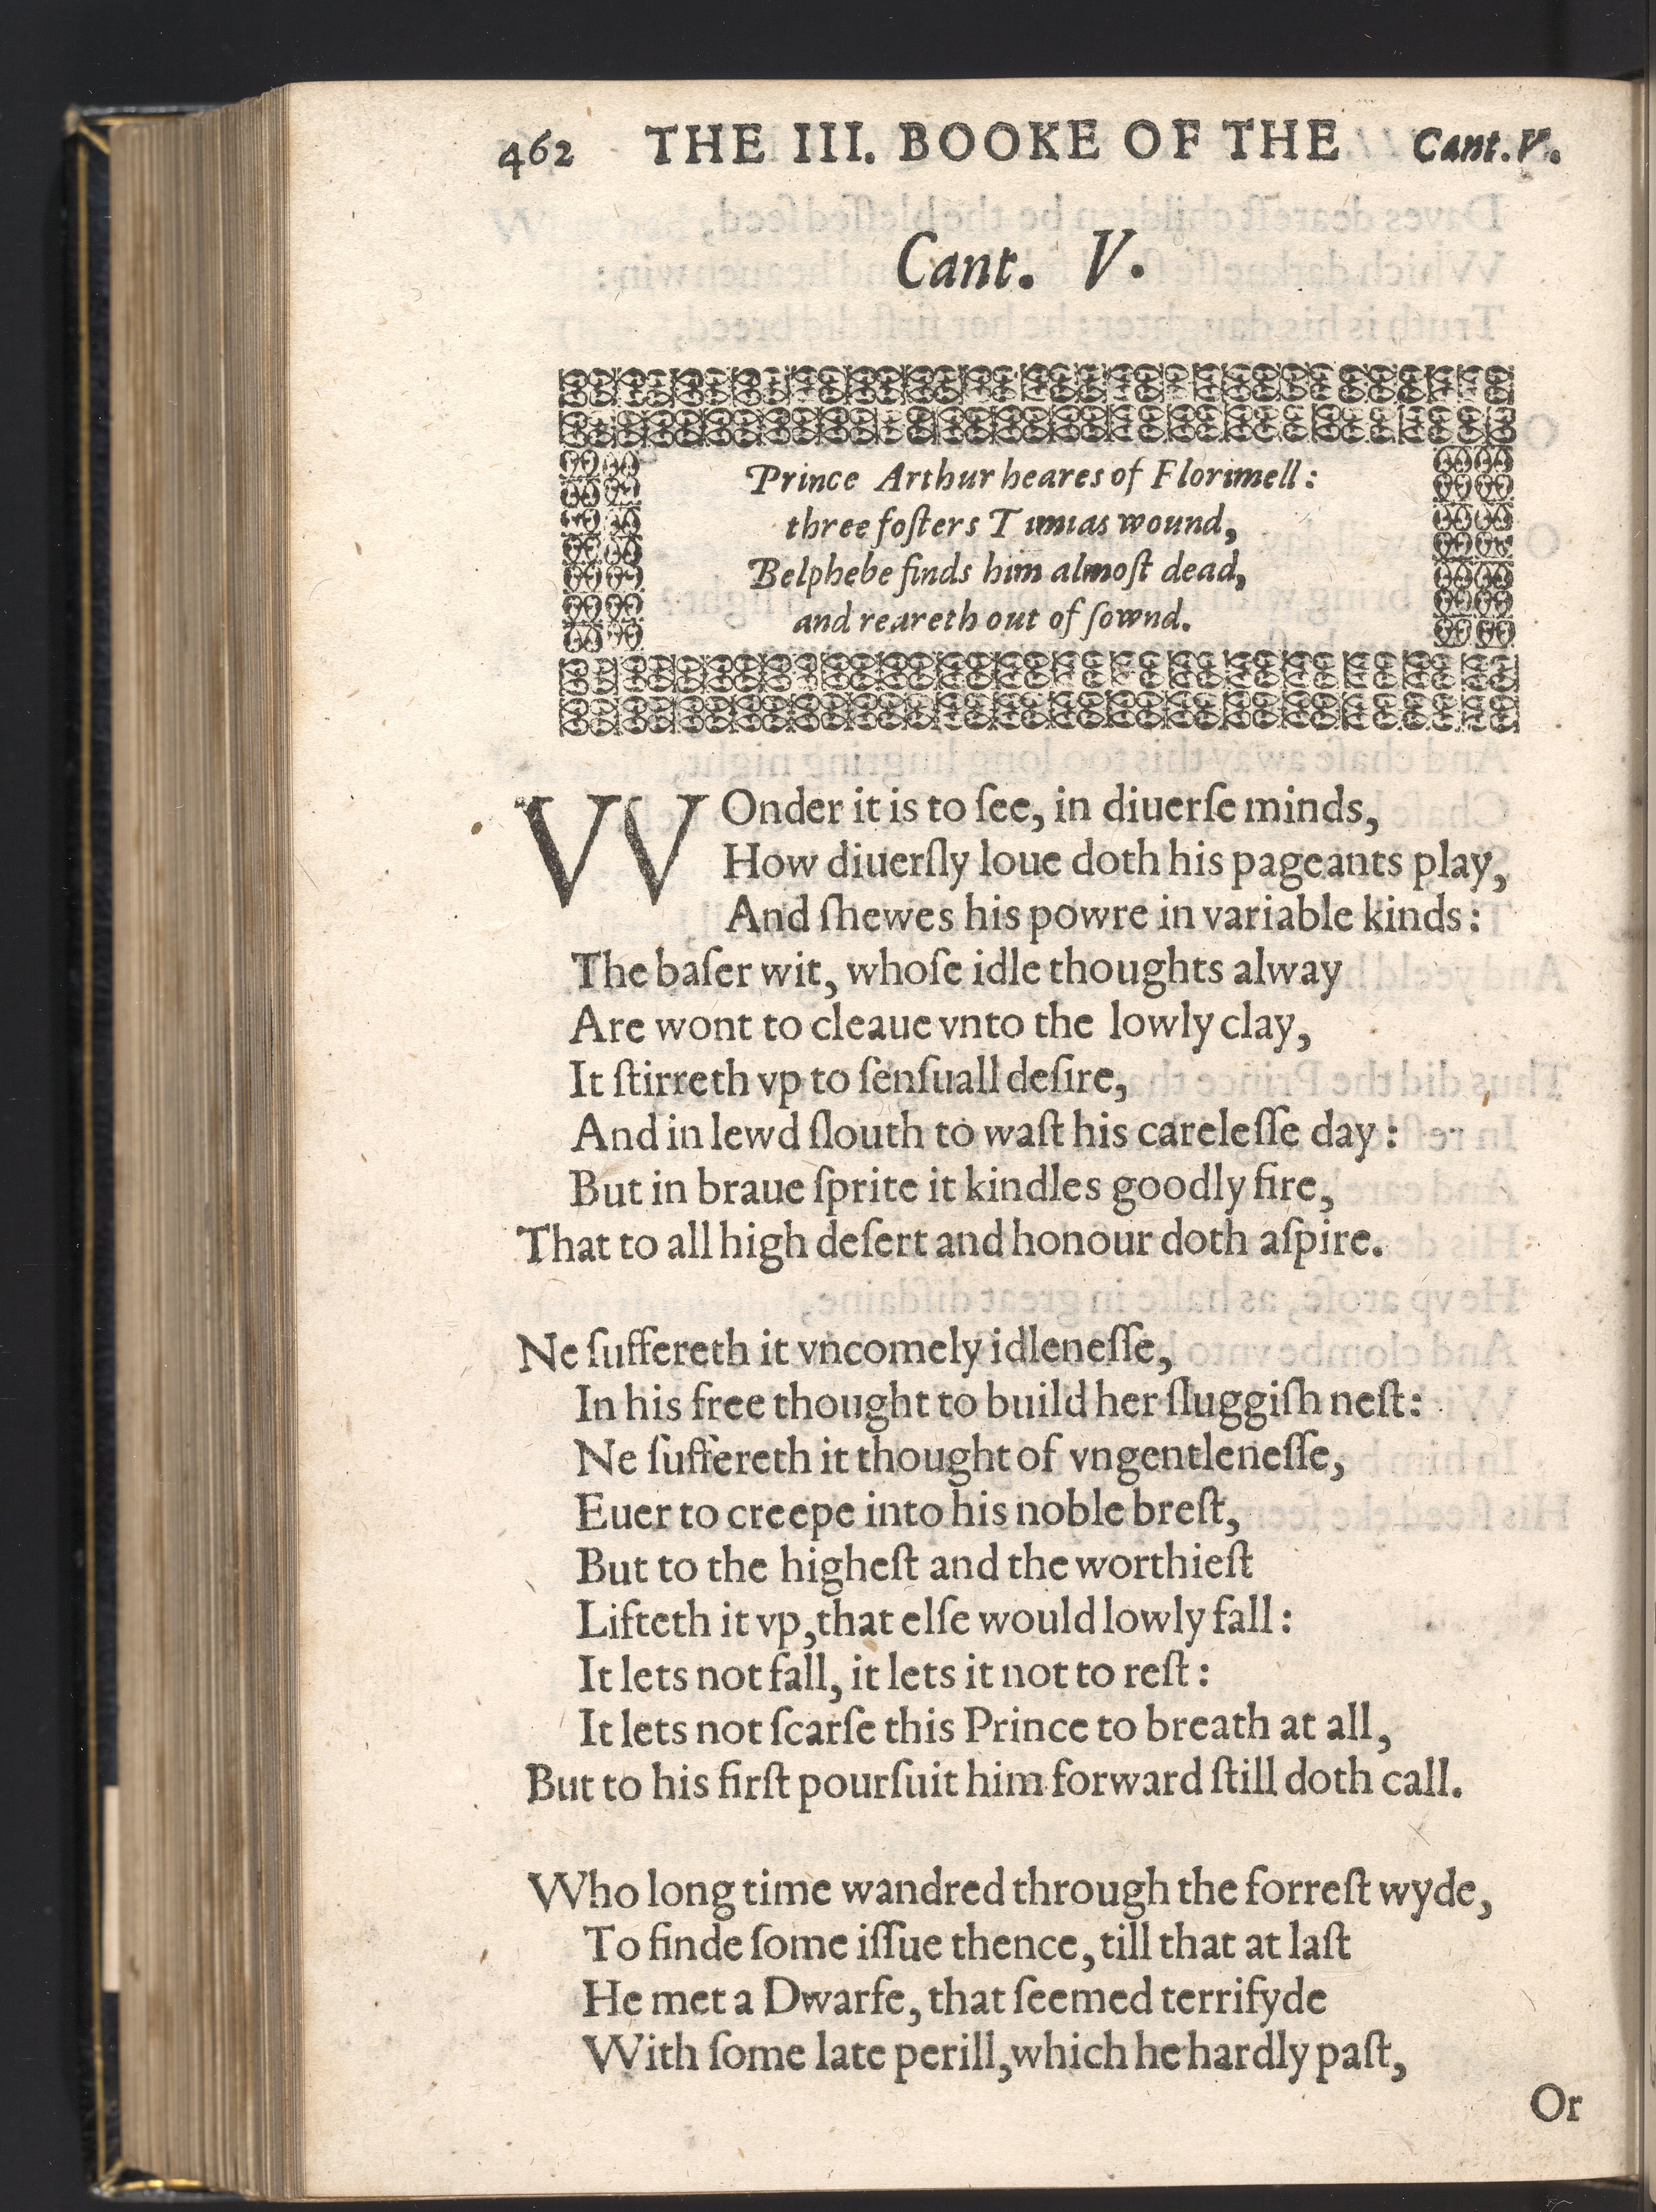 462 THE III. BOOKE OF THE Cant. V.
Cant. V.
Prince Arthur heares of Florimell:
three foſters Timias wound,
Belphebe finds him almoſt dead,
and reareth out of ſownd.
WOnder it is to ſee, in diuerſe minds,
How diuerſly loue doth his pageants play,
And ſhewes his powre in variable kinds:
The baſer wit, whoſe idle thoughts alway
Are wont to cleaue vnto the lowly clay,
It ſtirreth vp to ſenſuall deſire,
And in lewd ſlouth to waſt his careleſſe day:
But in braue ſprite it kindles goodly fire,
That to all high deſert and honour doth aſpire.
Ne ſuffereth it vncomely idleneſſe,
In his free thought to build her ſluggiſh neſt:
Ne ſuffereth it thought of vngentleneſſe,
Euer to creepe into his noble breſt,
But to the higheſt and the worthieſt
Lifteth it vp, that elſe would lowly fall:
It lets not fall, it lets it not to reſt:
It lets not ſcarſe this Prince to breath at all,
But to his firſt pourſuit him forward ſtill doth call.
Who long time wandred through the forreſt wyde,
To finde ſome iſſue thence, till that at laſt
He met a Dwarfe, that ſeemed terrifyde
With ſome late perill, which he hardly paſt,
Or